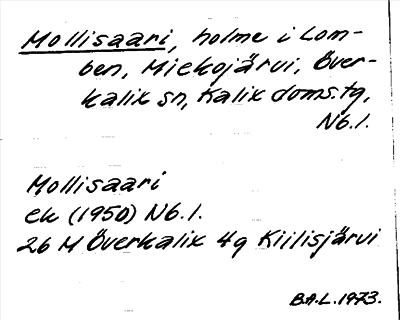 Mollisaari, holme i Lom-
ben, Miekojärvi, Över-
kalix sn, Kalix doms.tg,
Nb.l.
Mollisaari
ek (1950) Nb.l.
26 M Överkalix 4g Kiilisjärvi
B.A.L. 1973.